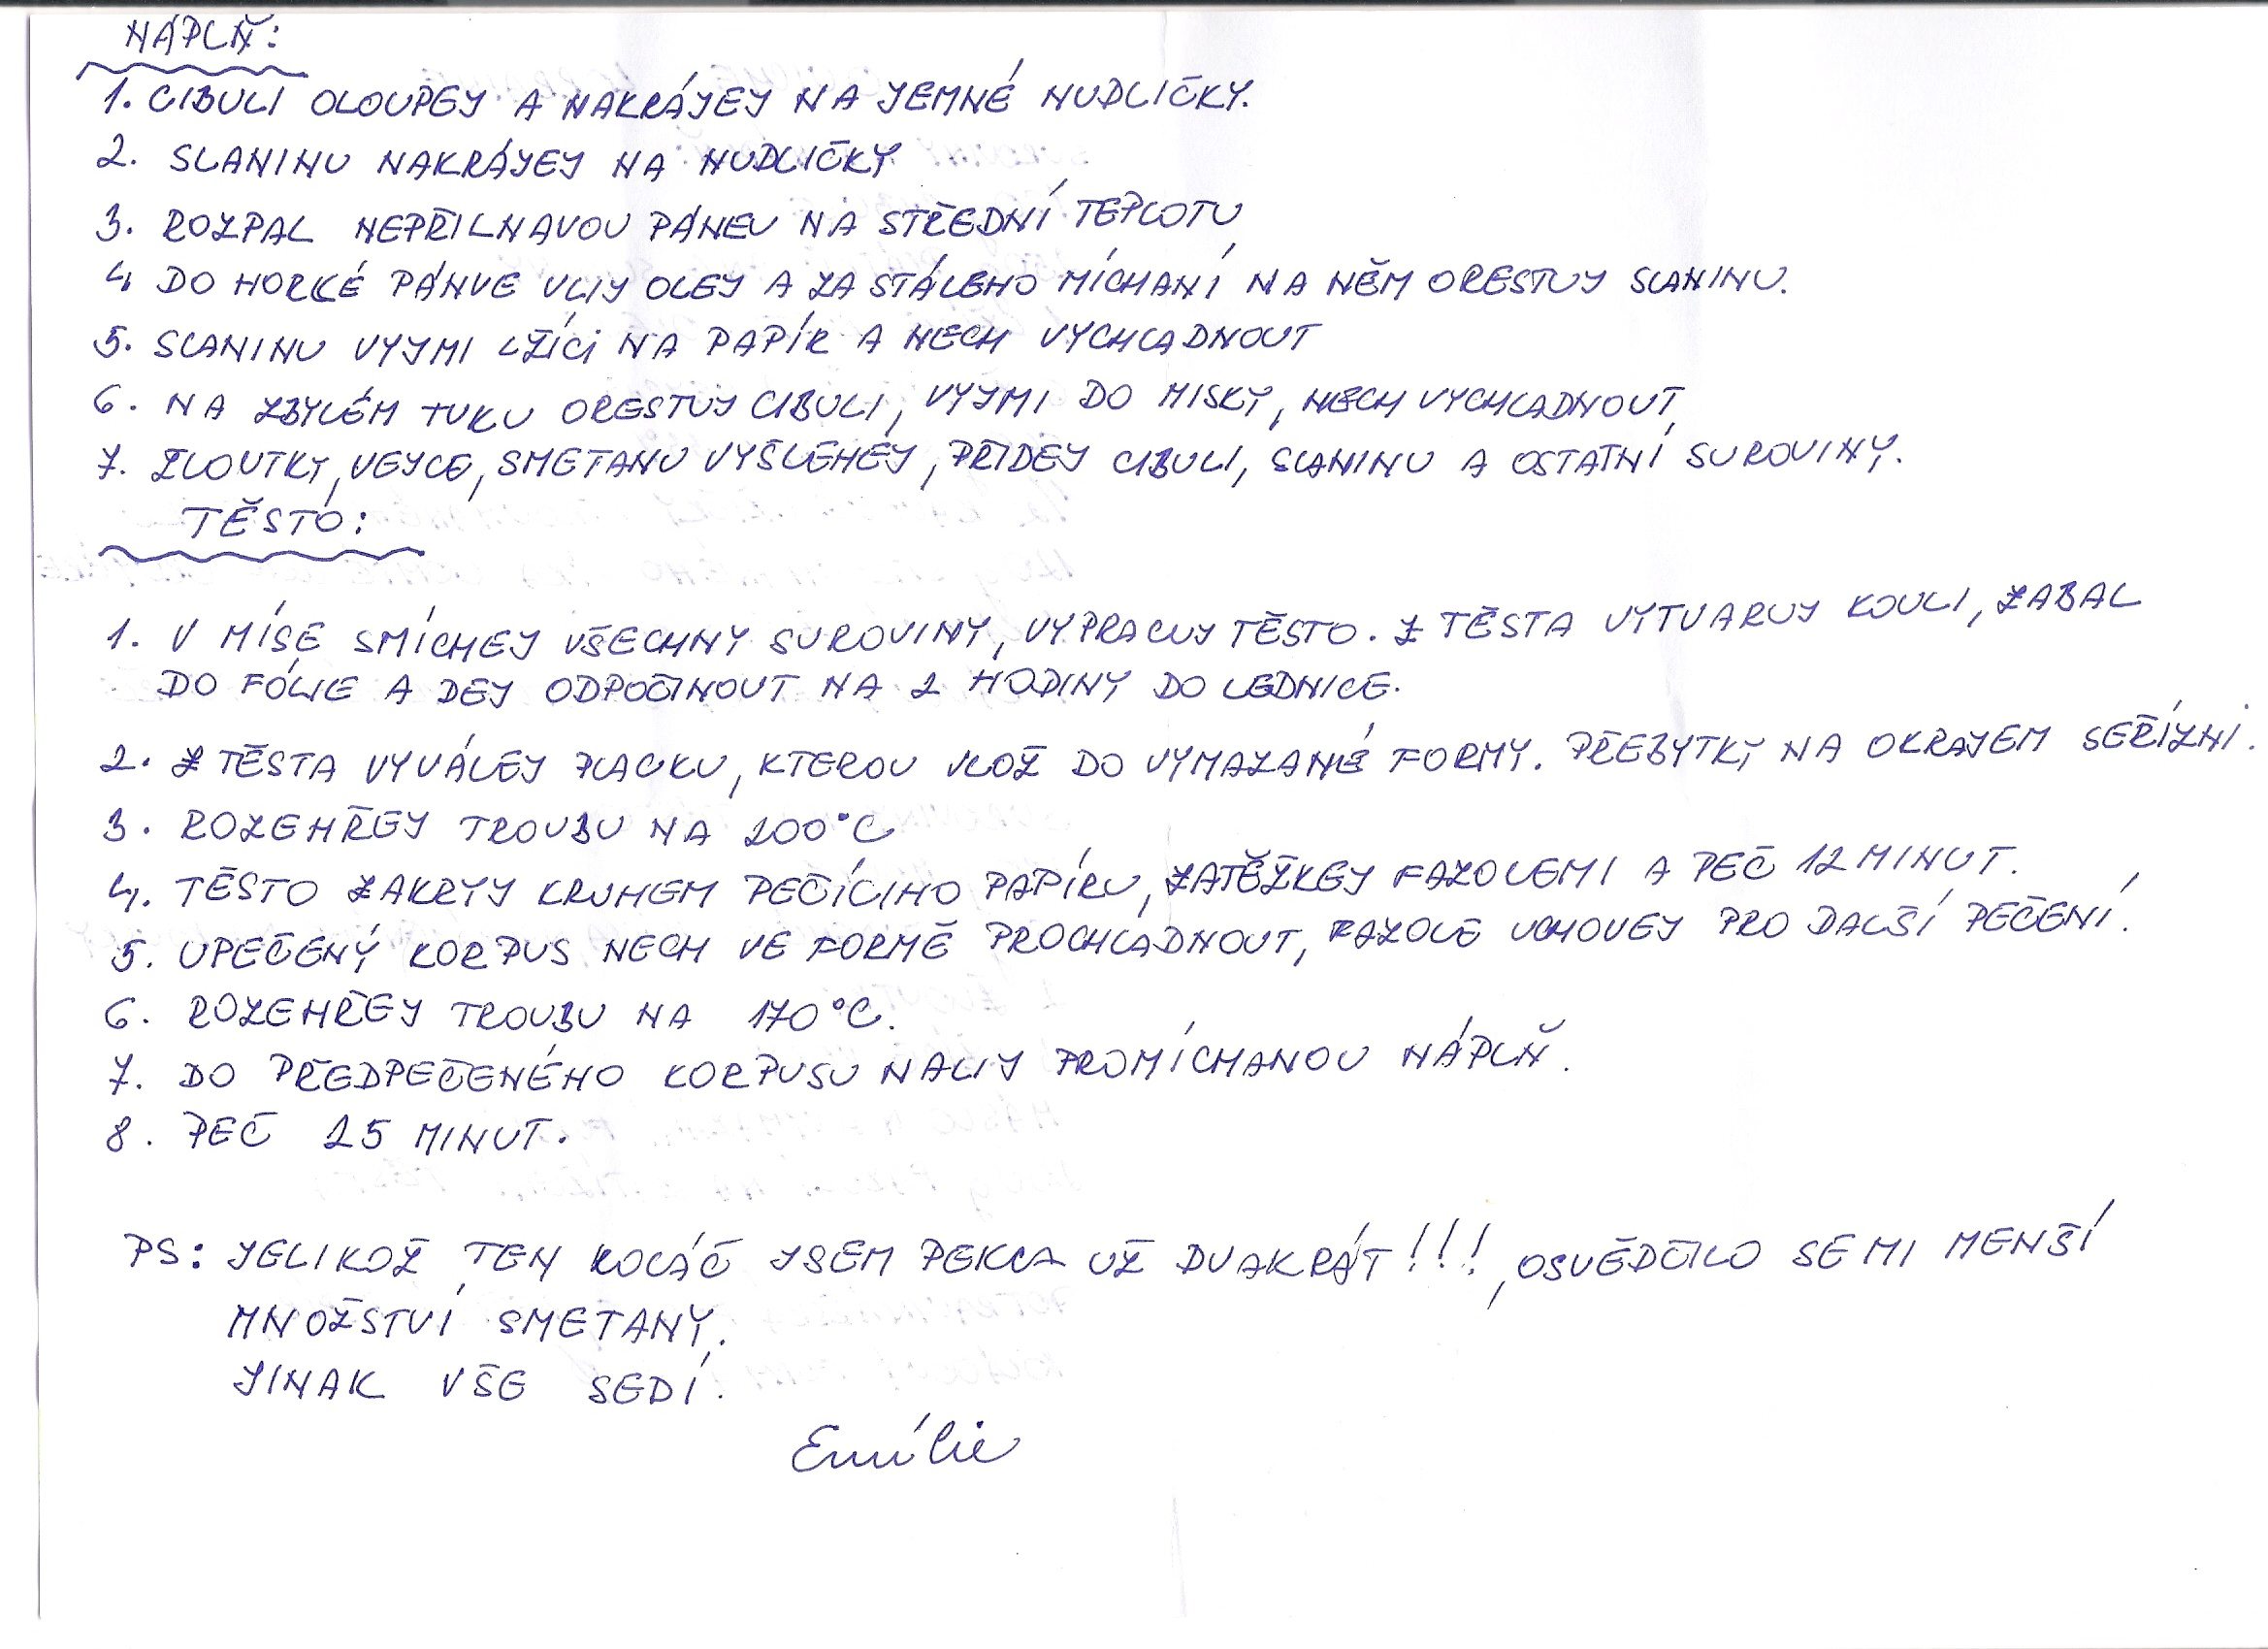 NÁPLŇ:
1. CIBULI OLOUPEJ A NAKRÁJEJ NA JEMNÉ NUDLIČKY.
2. SLANINU NAKRÁJEJ NA NUDLIČKY
3. ROZPAL NEPŘILNAVOU PÁNEV NA STŘEDNÍ TEPLOTU
4. DO HORKÉ PÁNVE VLIJ OLEJ A ZA STÁLEHO MÍCHANÍ NA NĚM ORESTUJ SLANINU.
5. SLANINU VYJMI LŽÍCÍ NA PAPÍR A NECH VYCHLADNOUT
6. NA ZBYLÉM TUKU ORESTUJ CIBULI, VYJMI DO MISKY, NECH VYCHLADNOUT,
7. ŽLOUTKY, VEJCE, SMETANU VYŠLEHEJ, PŘIDEJ CIBULI, SLANINU A OSTATNÍ SUROVINY.
TĚSTO:
1. V MÍSE SMÍCHEJ VŠECHNY SUROVINY, VYPRACUJ TĚSTO. Z TĚSTA VYTVARUJ KOULI, ZABAL
DO FÓLIE A DEJ ODPOČINOUT NA 2 HODINY DO LEDNICE.
2. Z TĚSTA VYVÁLEJ PLACKU, KTEROU VLOŽ DO VYMAZANÉ FORMY. PŘEBYTKY NA OKRAJEM SEŘÍZNI.
3. ROZEHŘEJ TROUBU NA 200°C
4. TĚSTO ZAKRYJ KRUHEM PEČÍCIHO PAPÍRU, ZATĚŽKEJ FAZOLEMI A PEČ 12 MINUT.
5. UPEČENÝ KORPUS NECH VE FORMĚ PROCHLADNOUT, FAZOLE UCHOVEJ PRO DALŠÍ PEČENÍ.
6. ROZEHŘEJ TROUBU NA 170°C.
7. DO PŘEDPEČENÉHO KORPUSU NALIJ PROMÍCHANOU NÁPLŇ.
8. PEČ 25 MINUT.
PS: JELIKOŽ TEN KOLÁČ JSEM PEKLA UŽ DVAKRÁT!!!, OSVĚDČILO SE MI MENŠÍ
MNOŽSTVÍ SMETANY.
JINAK VŠE SEDÍ.
Emílie